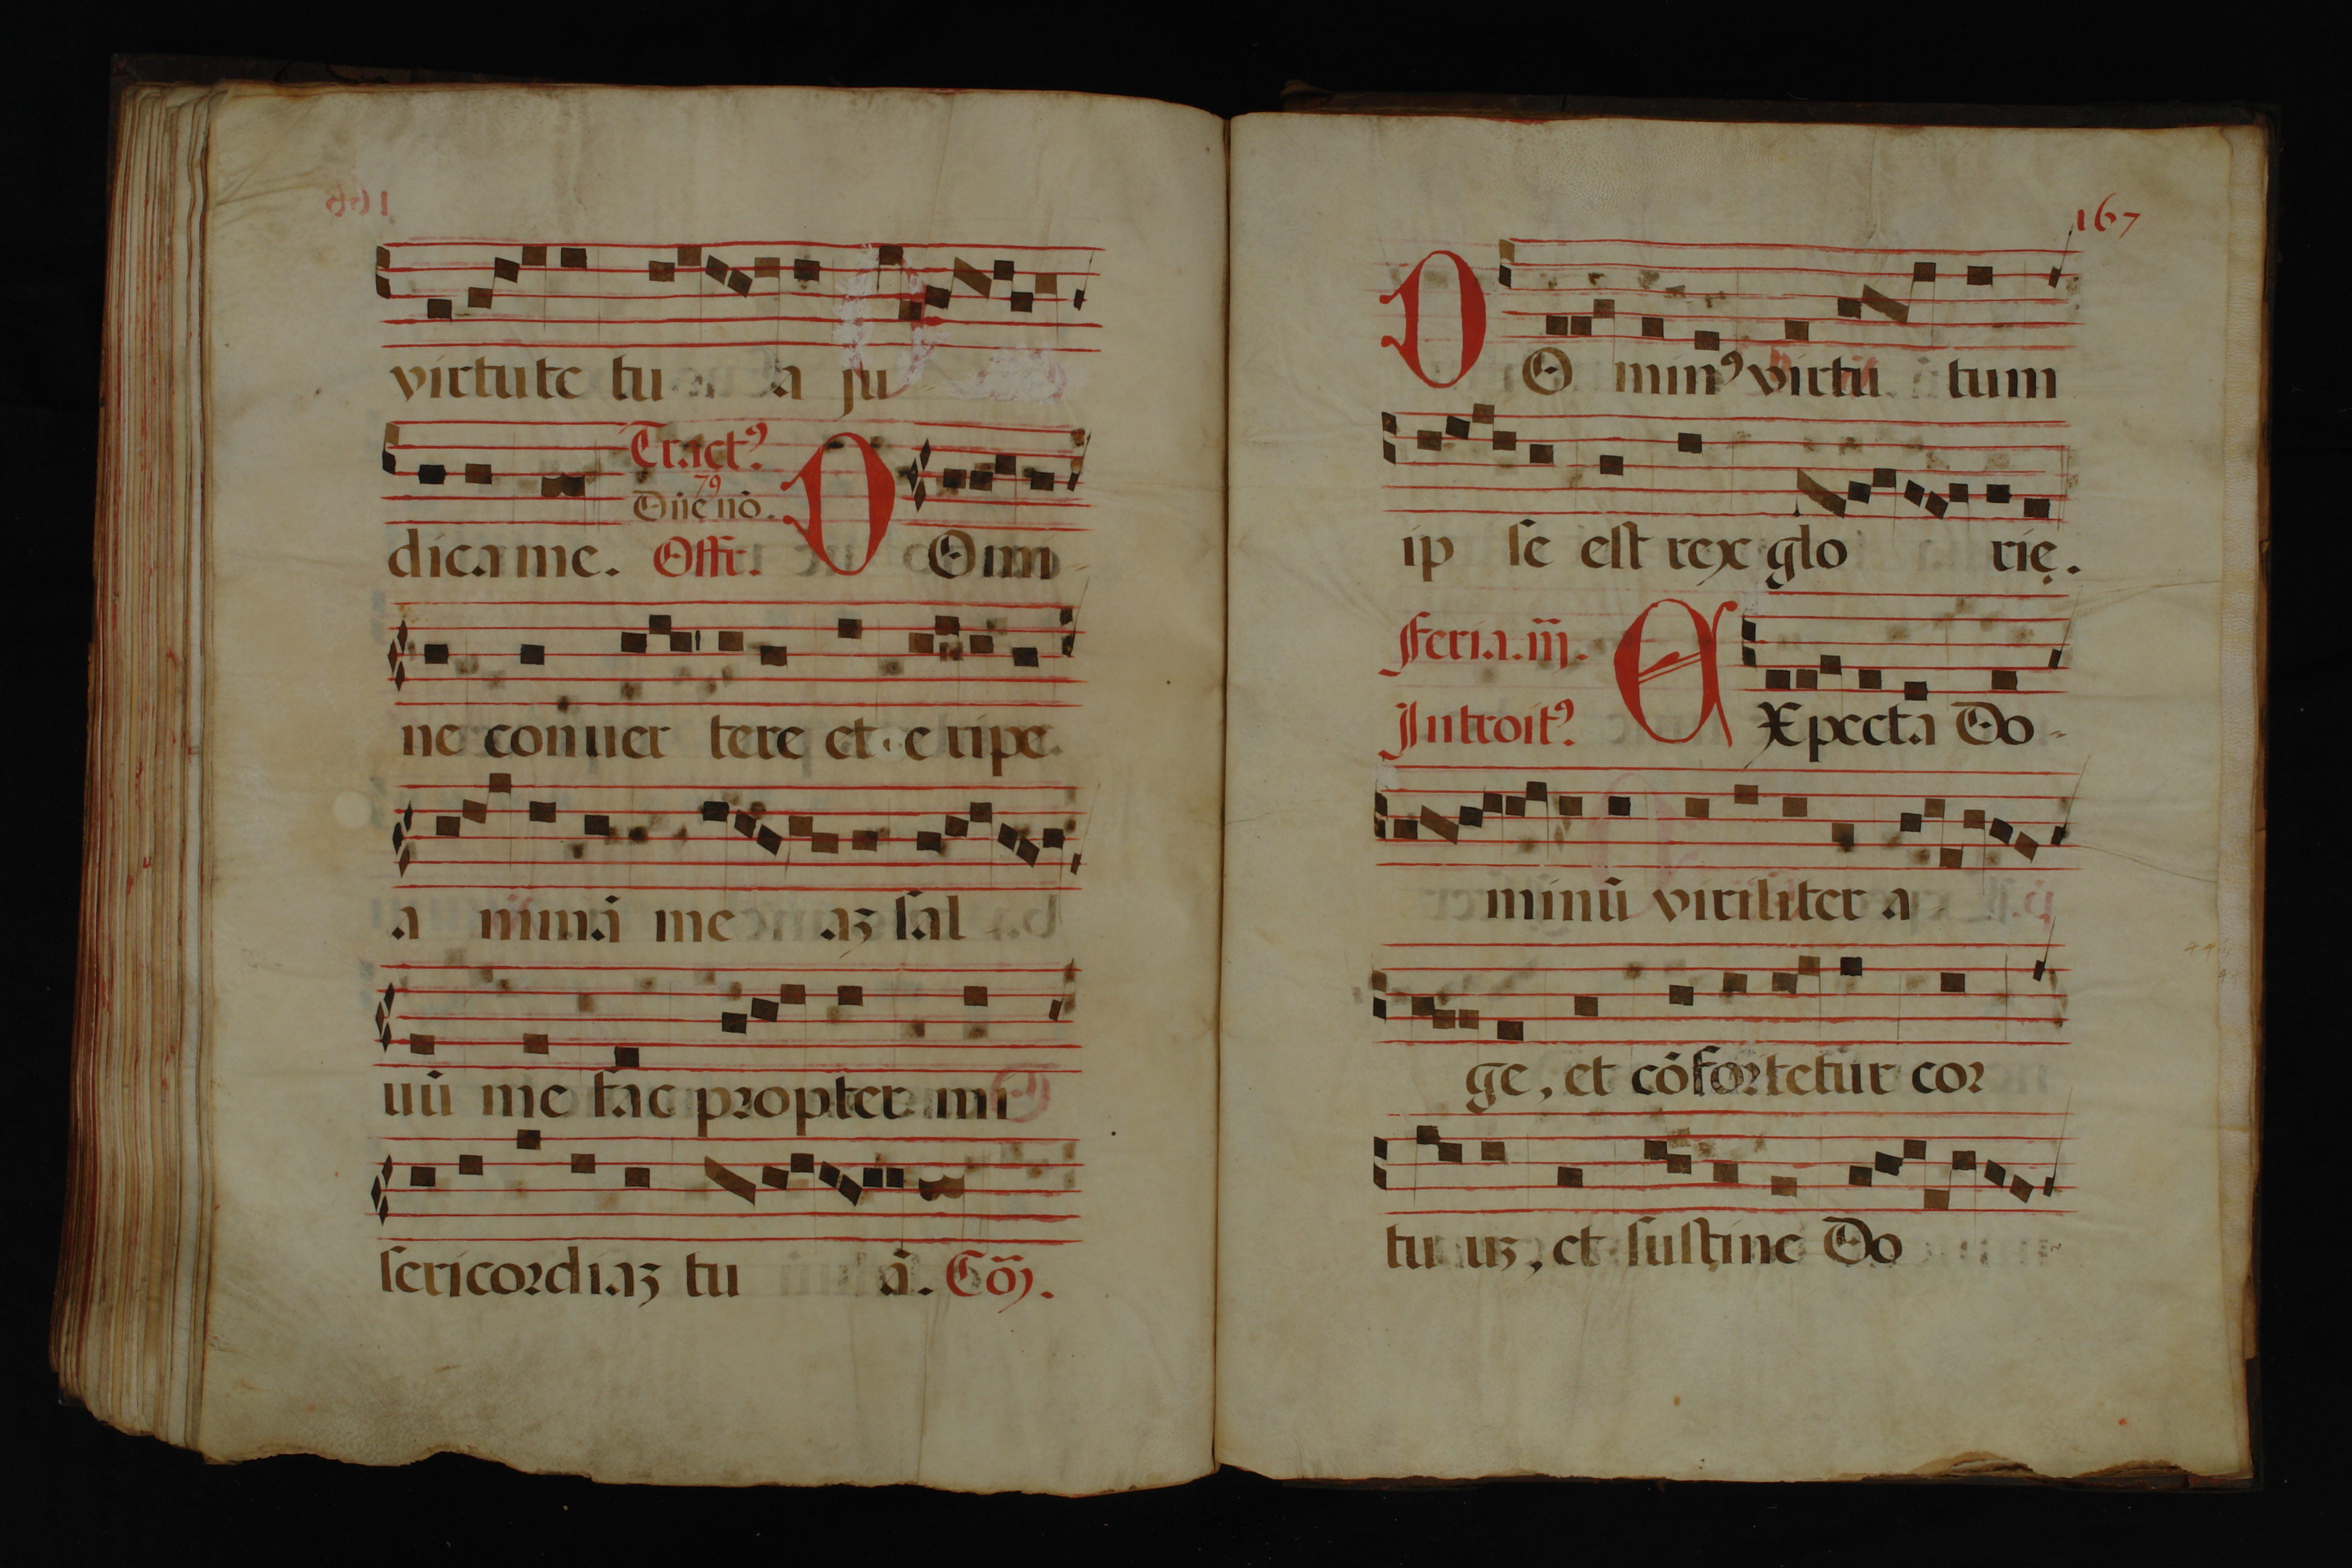 virtute tu a ju
Tractꝰ
79
Dñe nō.
dica me. Offr. DOmi
ne conuer tere et e ripe
a nimā me aꝫ sal
uū me fac propter mi
sericordiaꝫ tu ā. Cōꝫ.
167
DO minꝰ virtu tum
ip se est rex glo rię.
Feria. iij.
Introitꝰ. EXpecta Do-
minū viriliter a
ge, et cōfortetur cor
tu uꝫ, et sustine Do